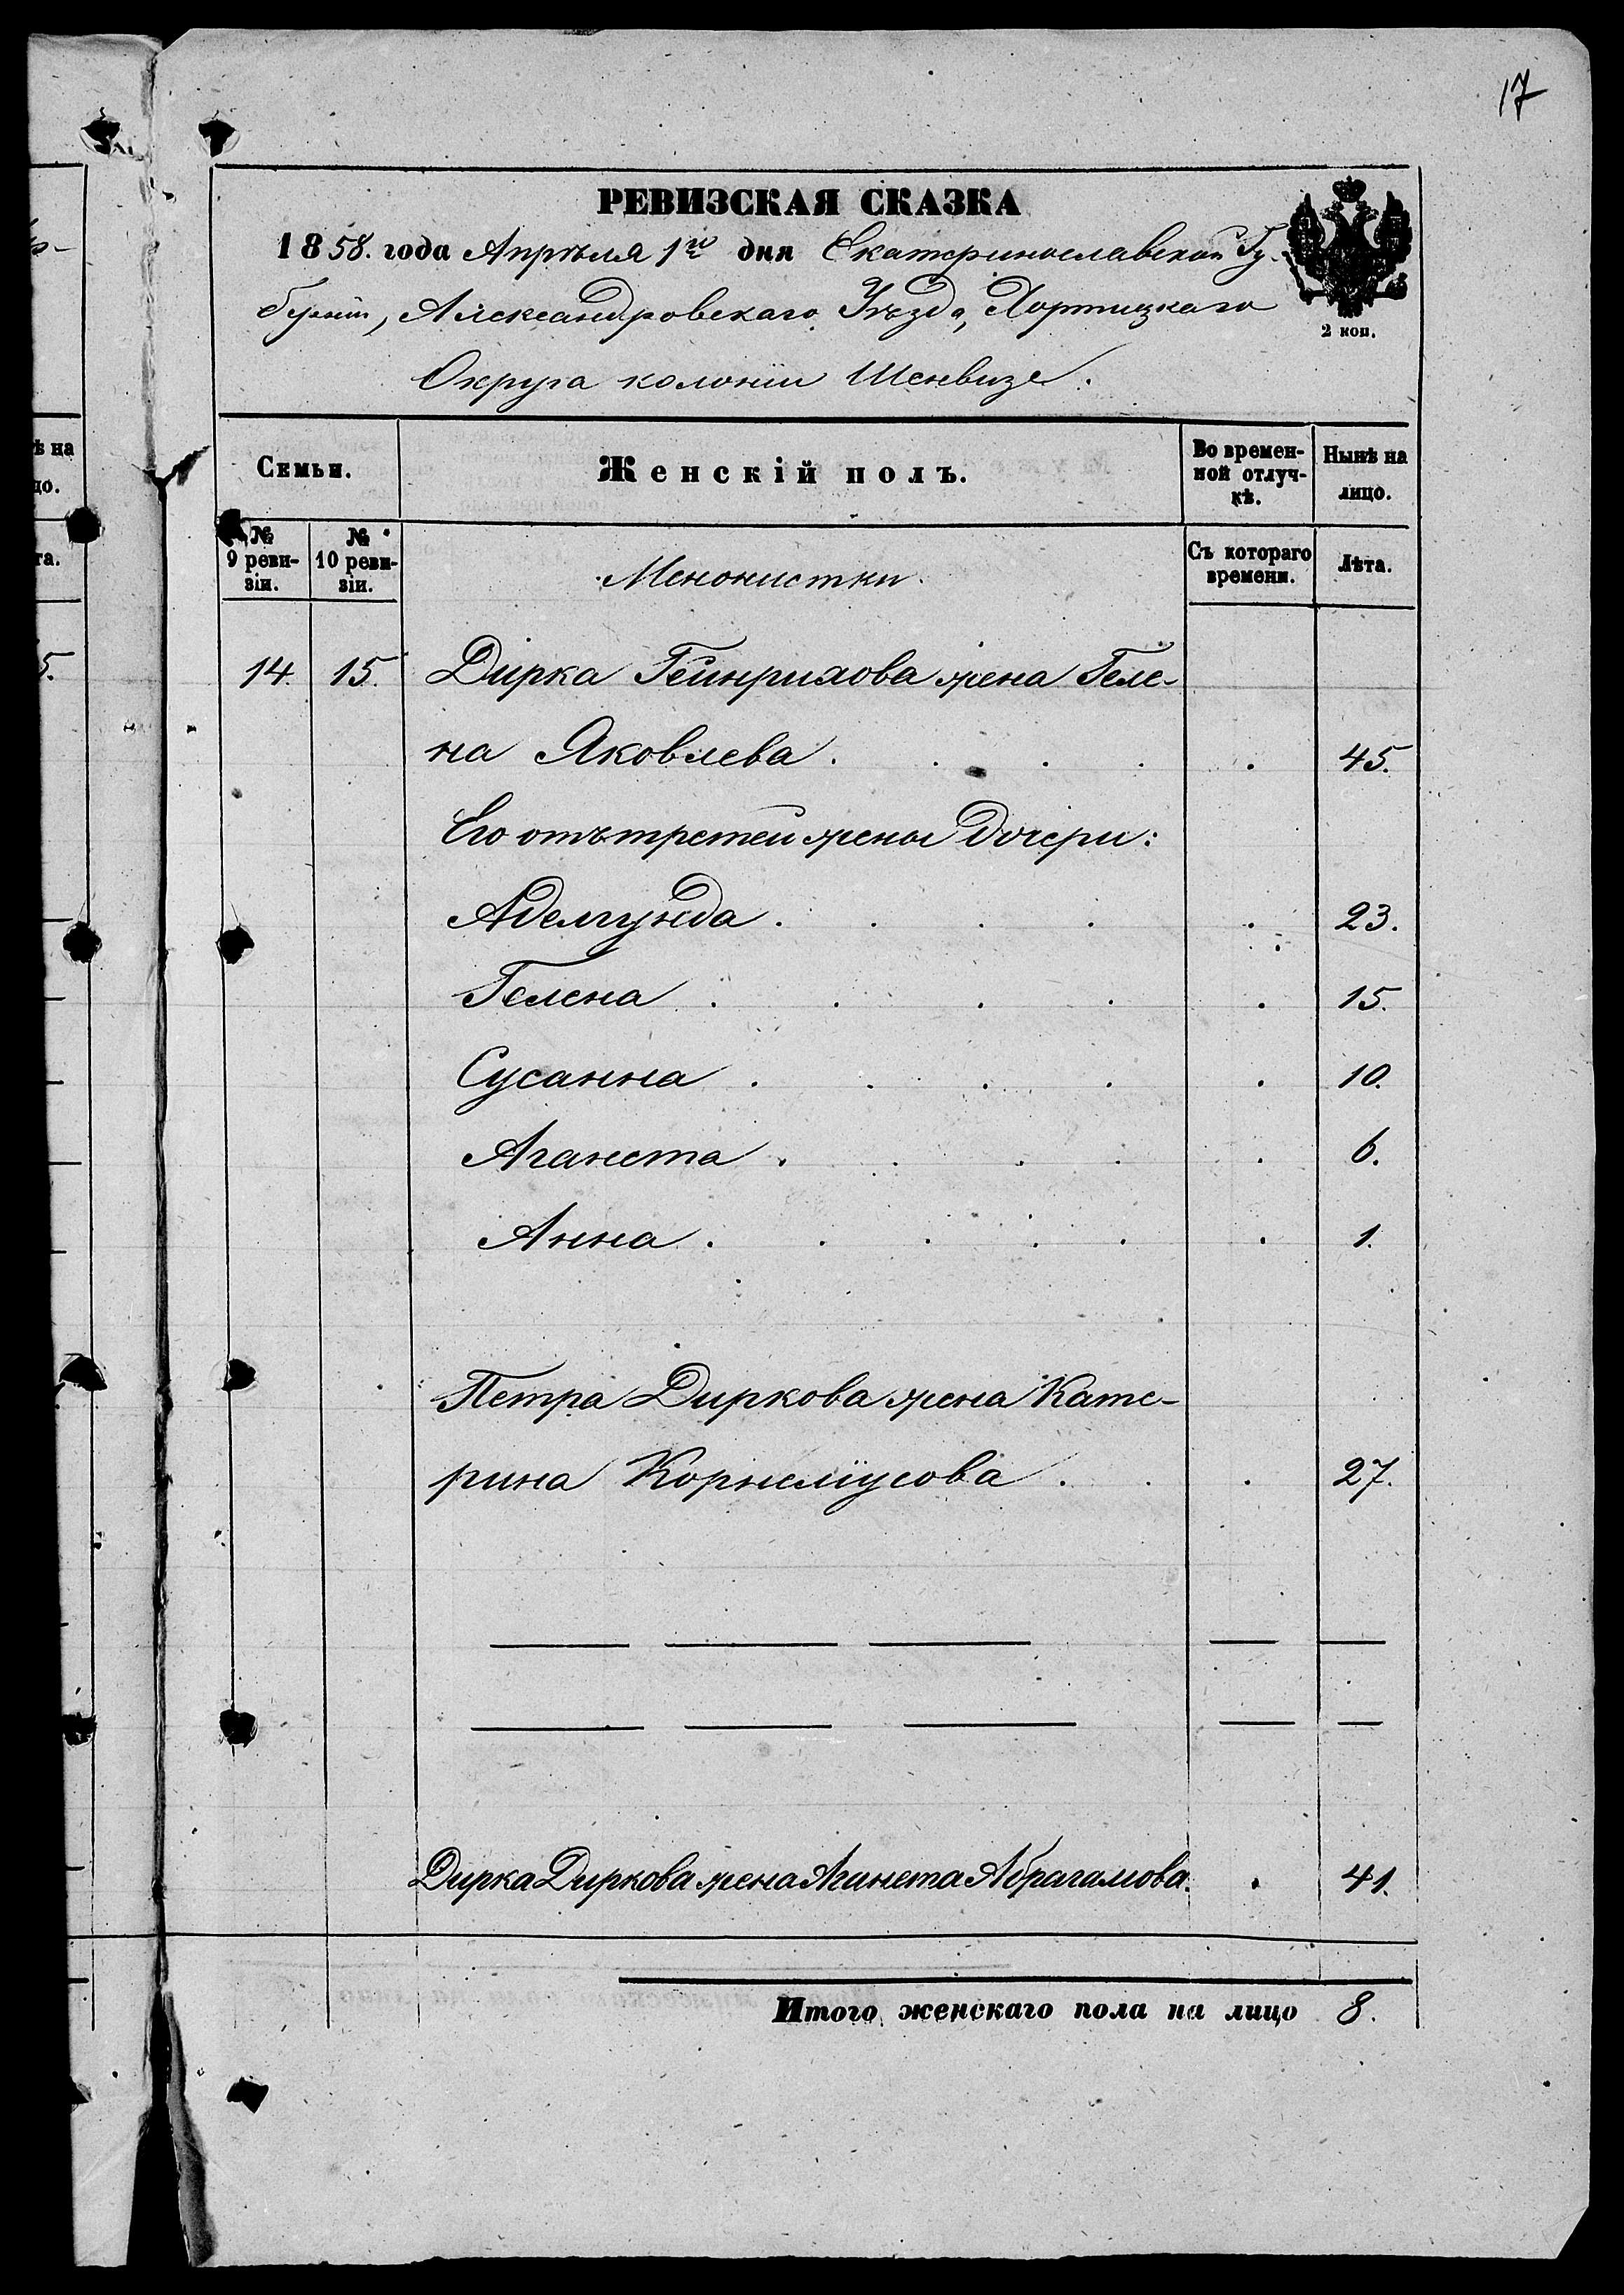 17
РЕВИЗСКАЯ СКАЗКА
1858. года Апрѣля 1го дня Екатеринославской Гу-
берніи, Александровскаго Уѣзда, Хортицкаго
2 коп.
Округа колоніи Шенвизе.
Семьи.
Женскій полъ.
Во времен-
ной отлуч-
кѣ.
Нынѣ на
лицо.
№
9 реви-
зіи.
№
10 реви-
зіи.
Менонистки
Съ котораго
времени.
Лѣта.
14. 15. Дирка Гейнрихова жена Геле-
на Яковлева. 45.
Его отъ третей жены дочери:
Аделгунда. 23.
Гелена. 15.
Сусанна. 10.
Аганета. 6.
Анна. 1.
Петра Диркова жена Кате-
рина Корнеліусова. 27.
Дирка Диркова жена Аганета Абрагамова. 41.
Итого женскаго пола на лицо 8.
ѣ на
цо.
та.
5.